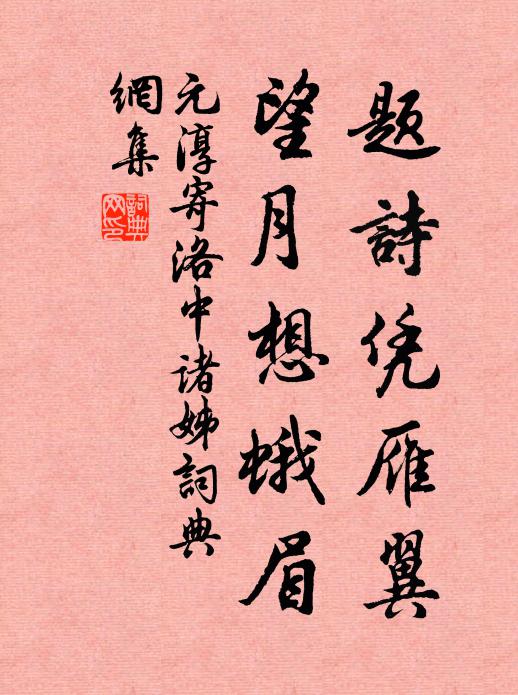 題詩凭雁翼
望月想蛾眉
元淳寄洛中诸姊詞典
網集
詞典
网印